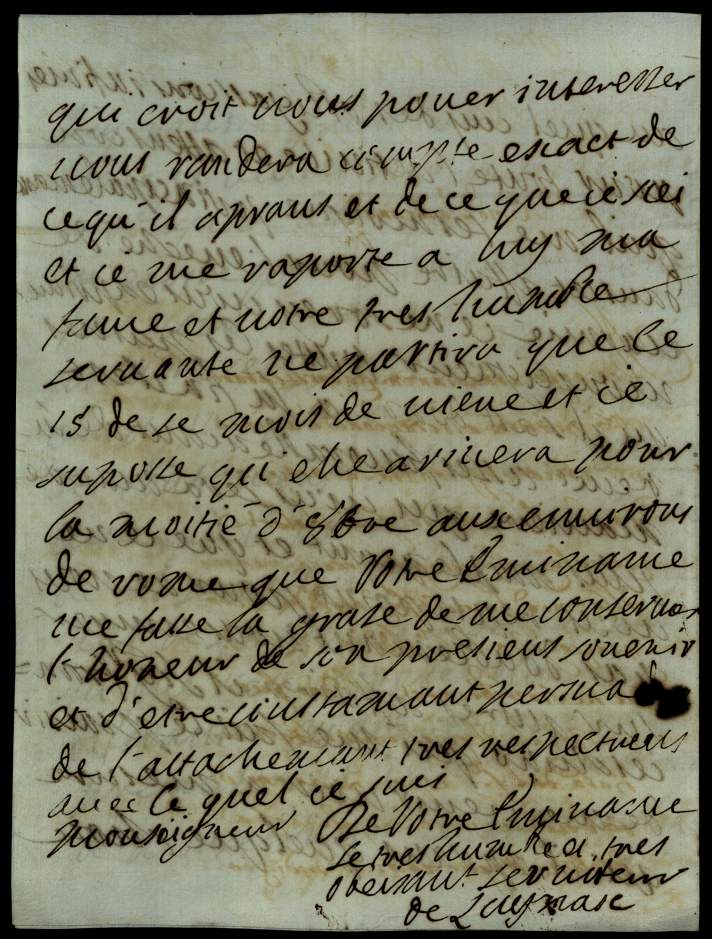 qui croit vous pouer interesser
vous randera compte exact de
ce qu'il apraus et de ce que ie sei
et ie me raporte a luy ma
fame et votre tres humble
servante ne partira que le
15 de se mois de viene et ie
suposse qu'elle arivera pour
la moitié d' 8bre aux environs
de rome que Votre Eminance
me fasse la grase de me conserver
l'honeur de son presieus souvenir
et d'etre constamant persuadé
de l'attachemant tres respectueus
avec le quel ie suis
monseigneur De Votre Eminance
le tres humble et tres
obeisant serviteur
de